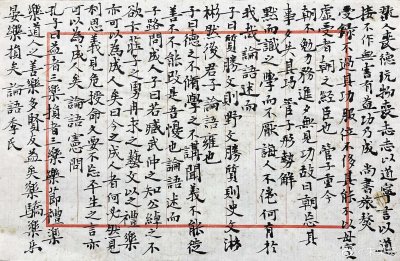 玩人喪德玩物喪志志以道寧言以道
接不作無害有益功乃成 尚書旅獒
受祿不過其功服位不侈其能不以毋實
虛受者朝之經臣也 管子重令
朝不勉力務進夕無見功故曰朝忘其
事夕失其功 管子形勢解
默而識之學而不厭誨人不倦何有於
我哉 論語述而
子曰質勝文則野文勝質則史文
彬然後君子 論語雍也
子曰德之不脩學之不講聞義不能徙
善不能改是吾憂也 論語述而
子路問成人子曰若臧武仲之知公綽之不
欲卞莊子之勇冉求之藝文之以禮樂
亦可以為成人矣曰今之成人者何必然見
利思義見危授命久要不忘平生之言亦
可以為成人矣 論語憲問
孔子曰益者三樂損者三樂樂節禮樂
樂道人之善樂多賢友益矣樂驕樂
宴樂損矣 論語季氏